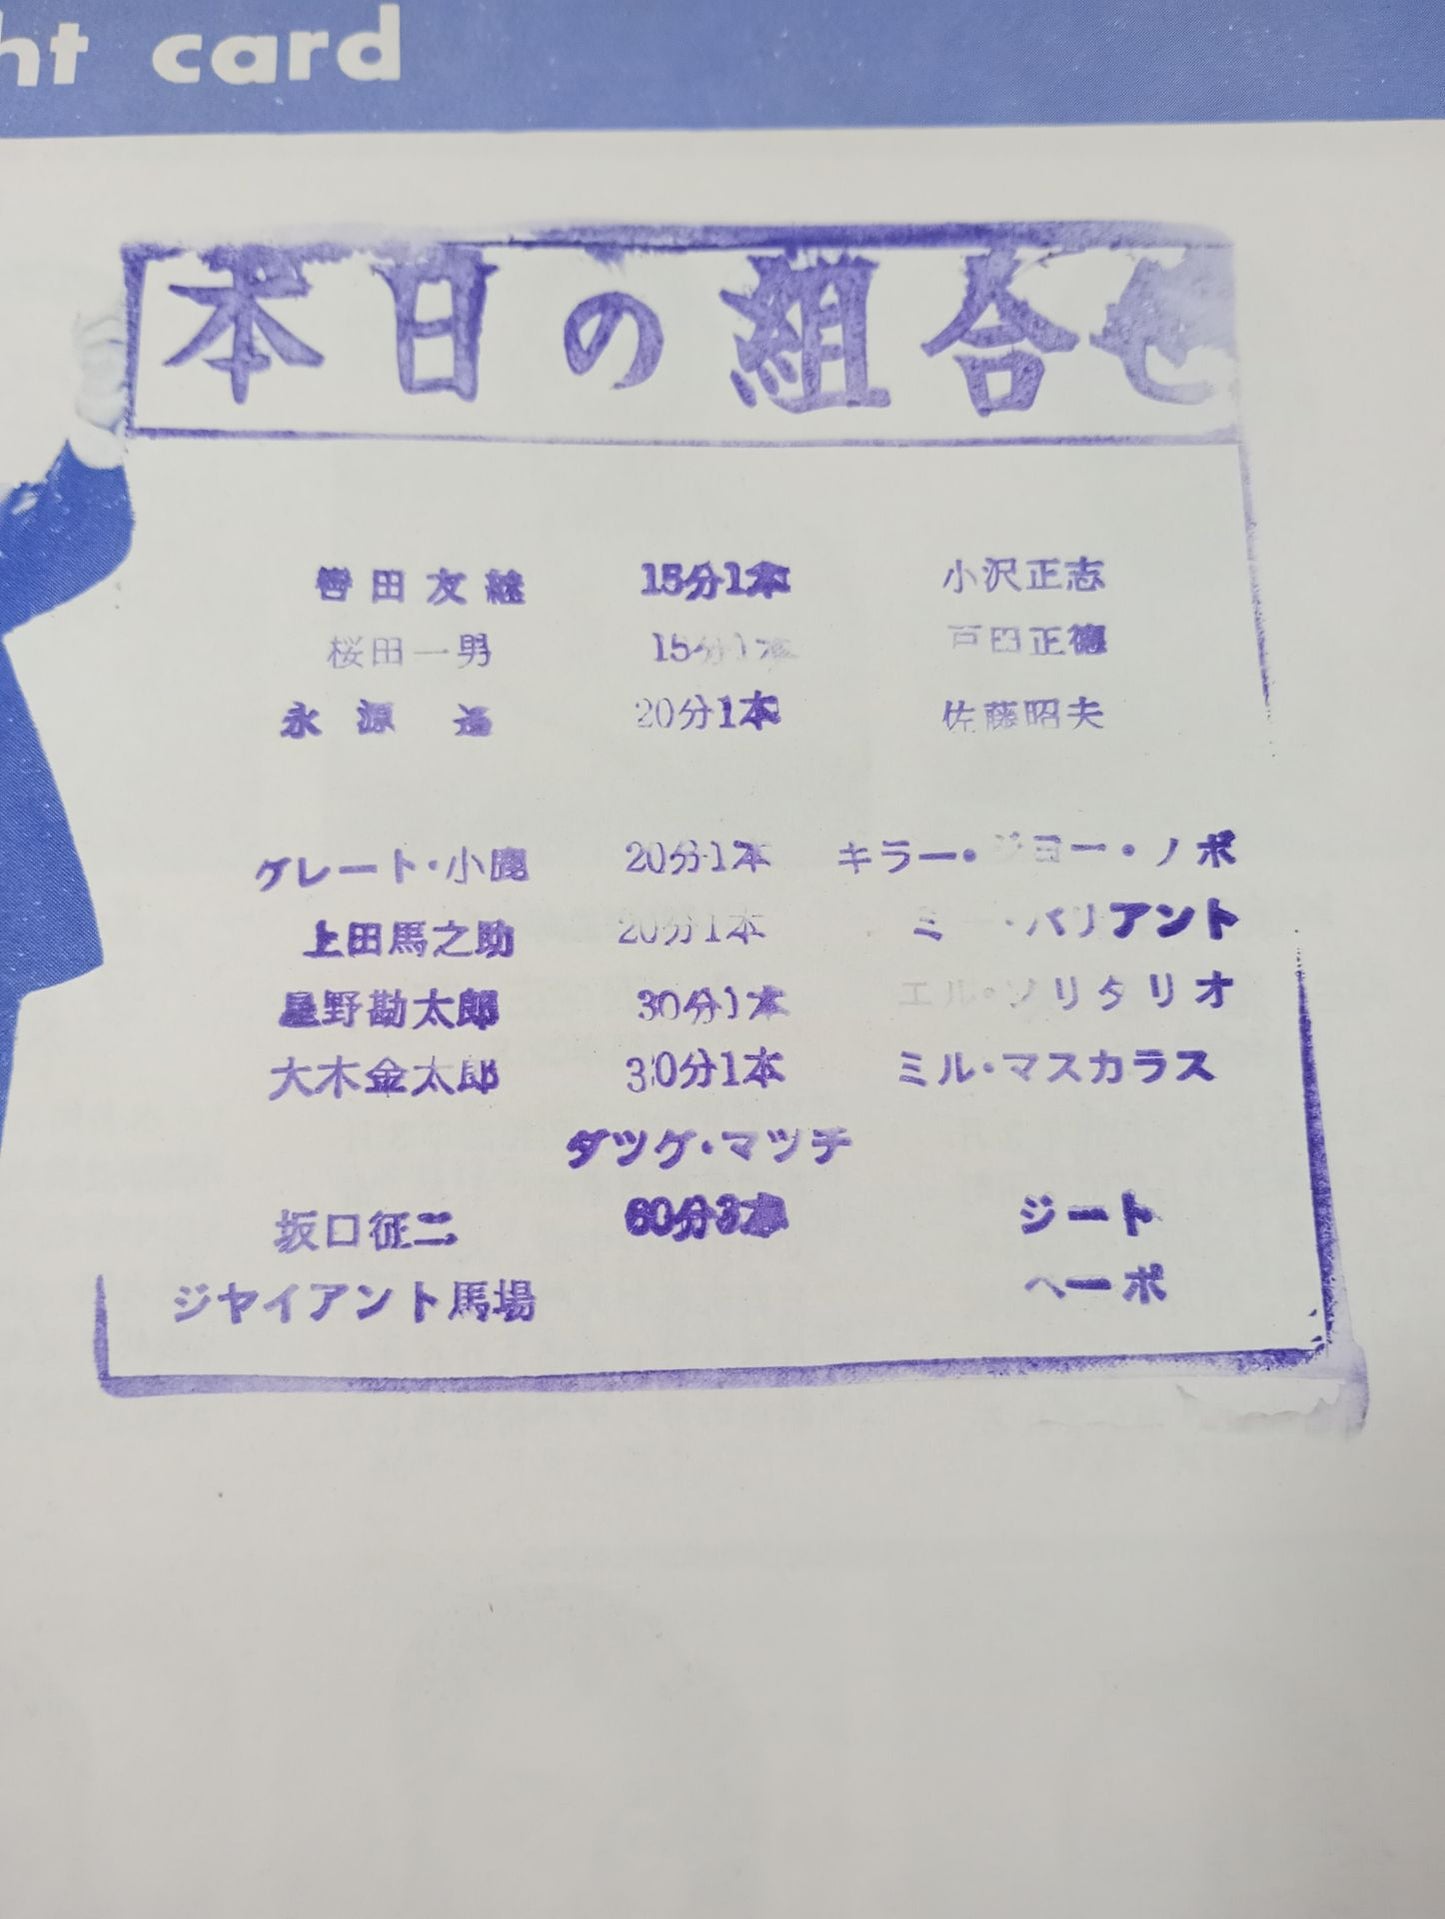 ht card
本日の組合せ
轡田友継 15分1本 小沢正志
桜田一男 15分1本 戸田正徳
永源遥 20分1本 佐藤昭夫
グレート・小鹿 20分1本 キラー・ジョー・ノボ
上田馬之助 20分1本 ミ ・バリアント
星野勘太郎 30分1本 エル・ソリタリオ
大木金太郎 30分1本 ミル・マスカラス
タツグ・マツチ
坂口征二 60分3本 ジート
ジヤイアント馬場 ヘーポ